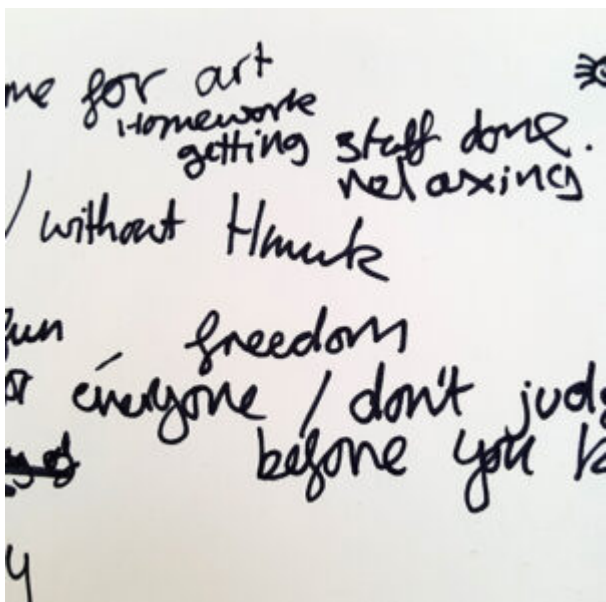 me for art
Homework
getting staff done.
relaxing
/ without Hmwk
fun freedom
or everyone / don't judg
before you k
y